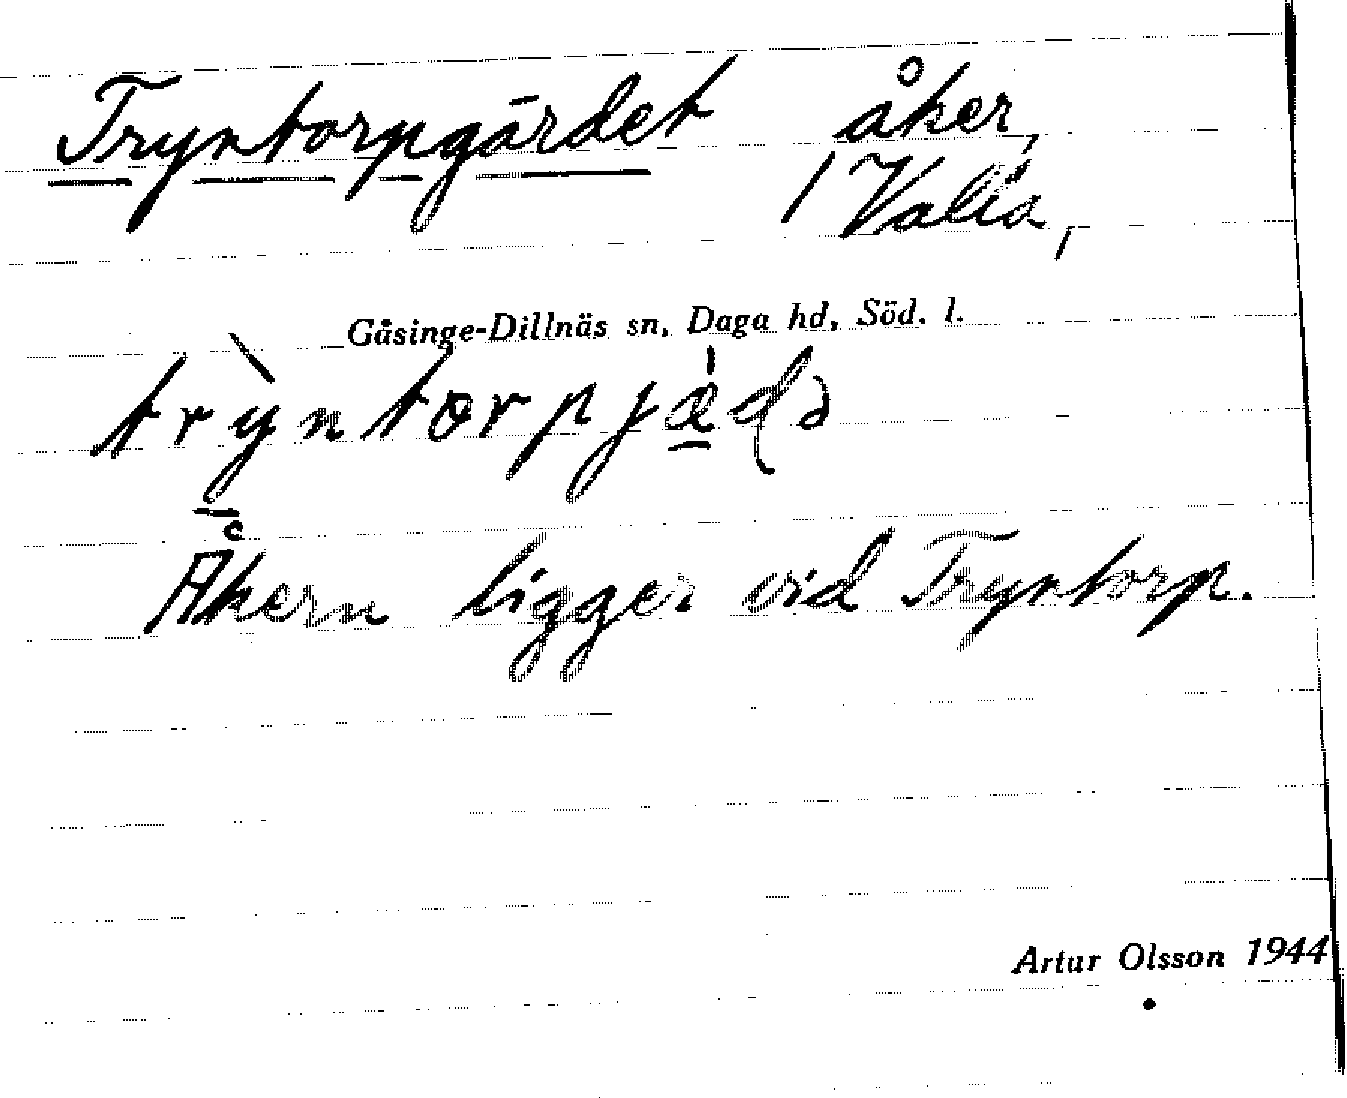 Tryntorpgärdet åker,
/ Valla,
Gåsinge-Dillnäs sn, Daga hd, Söd. l.
Åkern ligger vid Tryntorp.
Artur Olsson 1944